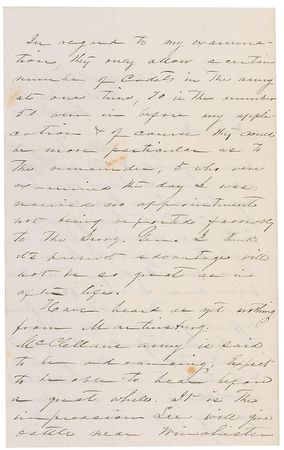 In regard to my examina-
tion, they only allow a certain
number of Cadets in the army
at one time, 70 is the number
50 were in before my appli-
cation & of course they could
be more particular as to
the remainder, 5 who were
examined the day I was,
received no appointments
not being reported favorably
to the Surg. Gen. I think
its present advantage will
not be so great as in
after life.
Have heard as yet nothing
from Martinsburg.
McClellans army is said
to be advancing. Expect
to be able to hear before
a great while. It is the
impression Lee will give
battle near Winchester